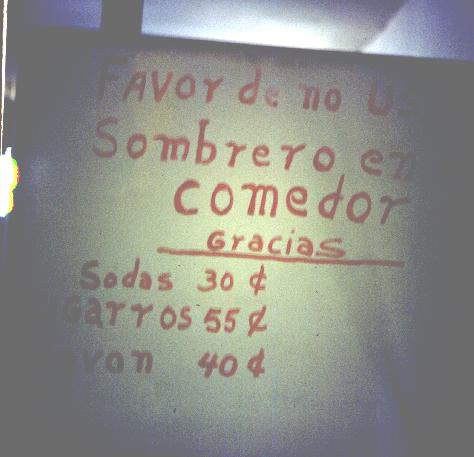 Favor de no
Sombrero en
comedor
Gracias
Sodas 30 ¢
55 ¢
40 ¢